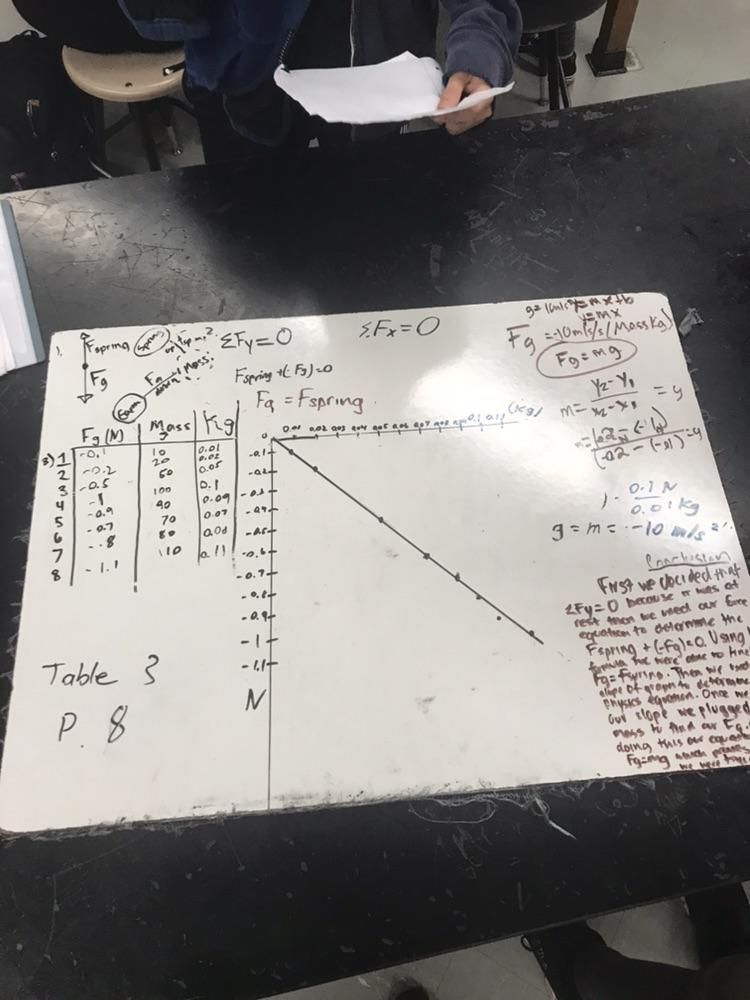 1.
Fspring
Fg
Spring
Earth
Mass
ΣFy=0
ΣFx=0
Fspring+(-Fg)=0
Fg = Fspring
y=mx+b
y=mx
Fg = -10m/s/s(Mass kg)
Fg=mg
m= y₂-y₁ / x₂-x₁ = g
0.1 N / 0.01 kg
g = m = -10 m/s²
Fg(N) Mass g Kg
1 -0.1 10 0.01
2 -0.2 20 0.02
3 -0.5 50 0.05
4 -1 100 0.1
5 -0.9 90 0.09
6 -0.7 70 0.07
7 -.8 80
8 -1.1 110 0.11
0 0.01 0.02 0.03 0.04 0.05 0.06 0.07 0.08 0.09 0.1 0.11 (Kg)
-0.1
-0.2
-0.3
-0.4
-0.5
-0.6
-0.7
-0.8
-0.9
-1
-1.1
N
Table 3
P. 8
Conclusion
First we decided that
ΣFy=0 because it was at
rest then we used our force
equation to determine the
Fspring +(-Fg)=0. Using
formula we were able to find
Fg=Fspring. Then we used
slope of graph to determine
physics equation. Once we
our slope we plugged
mass to find our Fg.
doing this our equation
Fg=mg which proves
we were